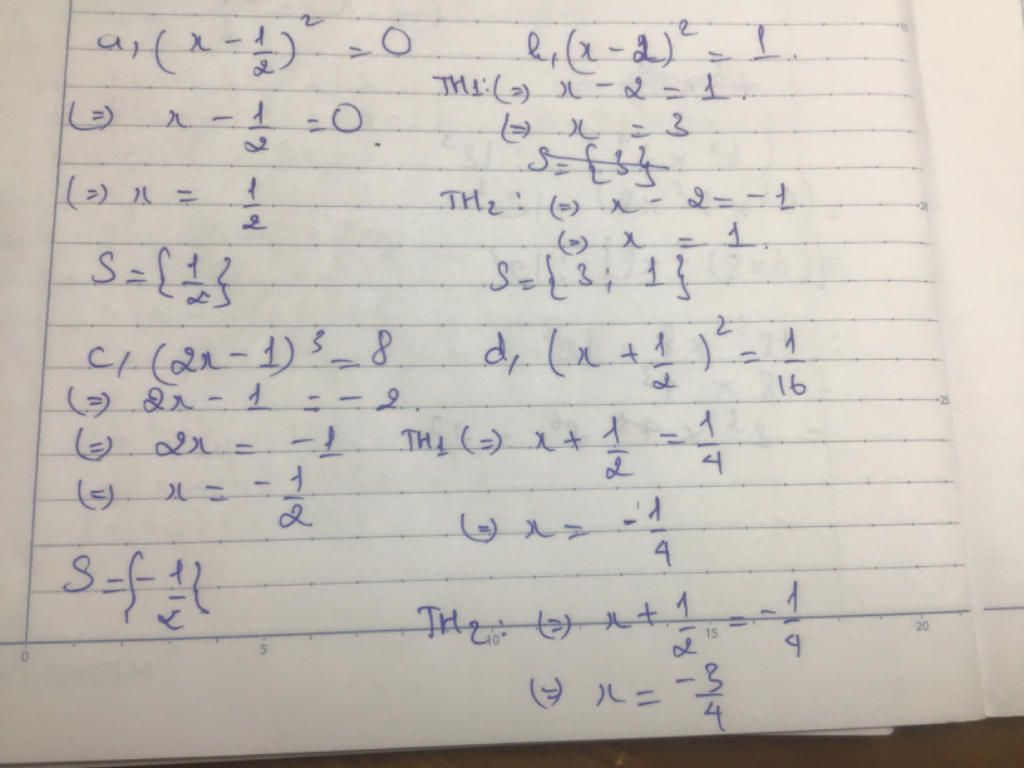 a, (x - 1/2)² = 0
(=) x - 1/2 = 0.
(=) x = 1/2
S = {1/2}
b, (x - 2)² = 1.
TH1: (=) x - 2 = 1.
(=) x = 3
S = {3}
TH2: (=) x - 2 = -1
(=) x = 1.
S = {3; 1}
c, (2x - 1)³ = 8
(=) 2x - 1 = - 2.
(=) 2x = -1
(=) x = -1/2
S = {-1/2}
d, (x + 1/2)² = 1/16
TH1 (=) x + 1/2 = 1/4
(=) x = -1/4
TH2: (=) x + 1/2 = -1/4
(=) x = -3/4
0 5 10 15 20
20
25